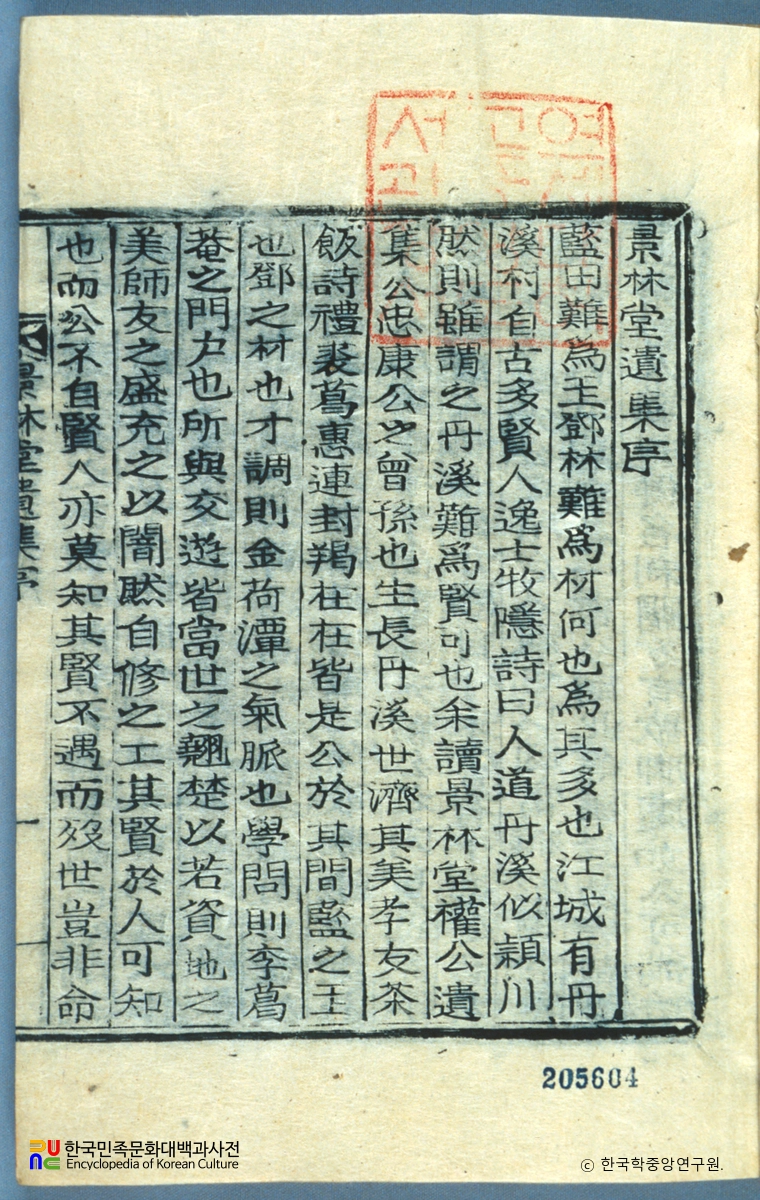 景林堂遺集序
藍田難爲玉鄧林難爲材何也爲其多也江城有丹
溪村自古多賢人逸士牧隱詩曰人道丹溪似穎川
然則雖謂之丹溪難爲賢可也余讀景林堂權公遺
集公忠康公之曾孫也生長丹溪世濟其美孝友茶
飯詩禮裘葛惠連封羯在在皆是公於其間藍之玉
也鄧之材也才調則金荷潭之氣脈也學問則李葛
菴之門戶也所與交遊皆當世之翹楚以若資地之
美師友之盛充之以闇然自修之工其賢於人可知
也而公不自賢人亦莫知其賢不遇而歿世豈非命
景林堂遺集序
205604
한국민족문화대백과사전
Encyclopedia of Korean Culture
© 한국학중앙연구원.